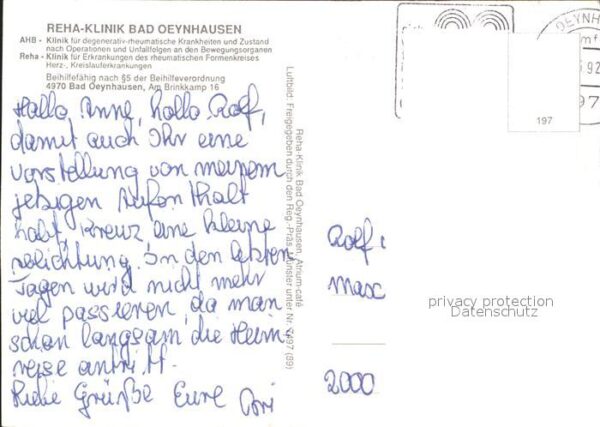 REHA-KLINIK BAD OEYNHAUSEN
AHB - Klinik für degenerativ-rheumatische Krankheiten und Zustand
nach Operationen und Unfallfolgen an den Bewegungsorganen
Reha - Klinik für Erkrankungen des rheumatischen Formenkreises
Herz-, Kreislauferkrankungen
Beihilfefähig nach §5 der Beihilfeverordnung
4970 Bad Oeynhausen, Am Brinkkamp 16
Hallo Anne, hallo Rolf,
damit auch Ihr eine
Vorstellung von meinem
jetzigen Aufenthalt
habt, eine kleine
In den letzten
Tagen wird nicht mehr
viel passieren, da man
schon langsam die Heim-
reise antritt.
Liebe Grüße Eure
Reha-Klinik Bad Oeynhausen, Atrium-café
Luftbild: Freigegeben durch den Reg.-Präs. Münster unter Nr. (89)
OEYNH
92
97
197
Rolf
Masc
2000
privacy protection
Datenschutz